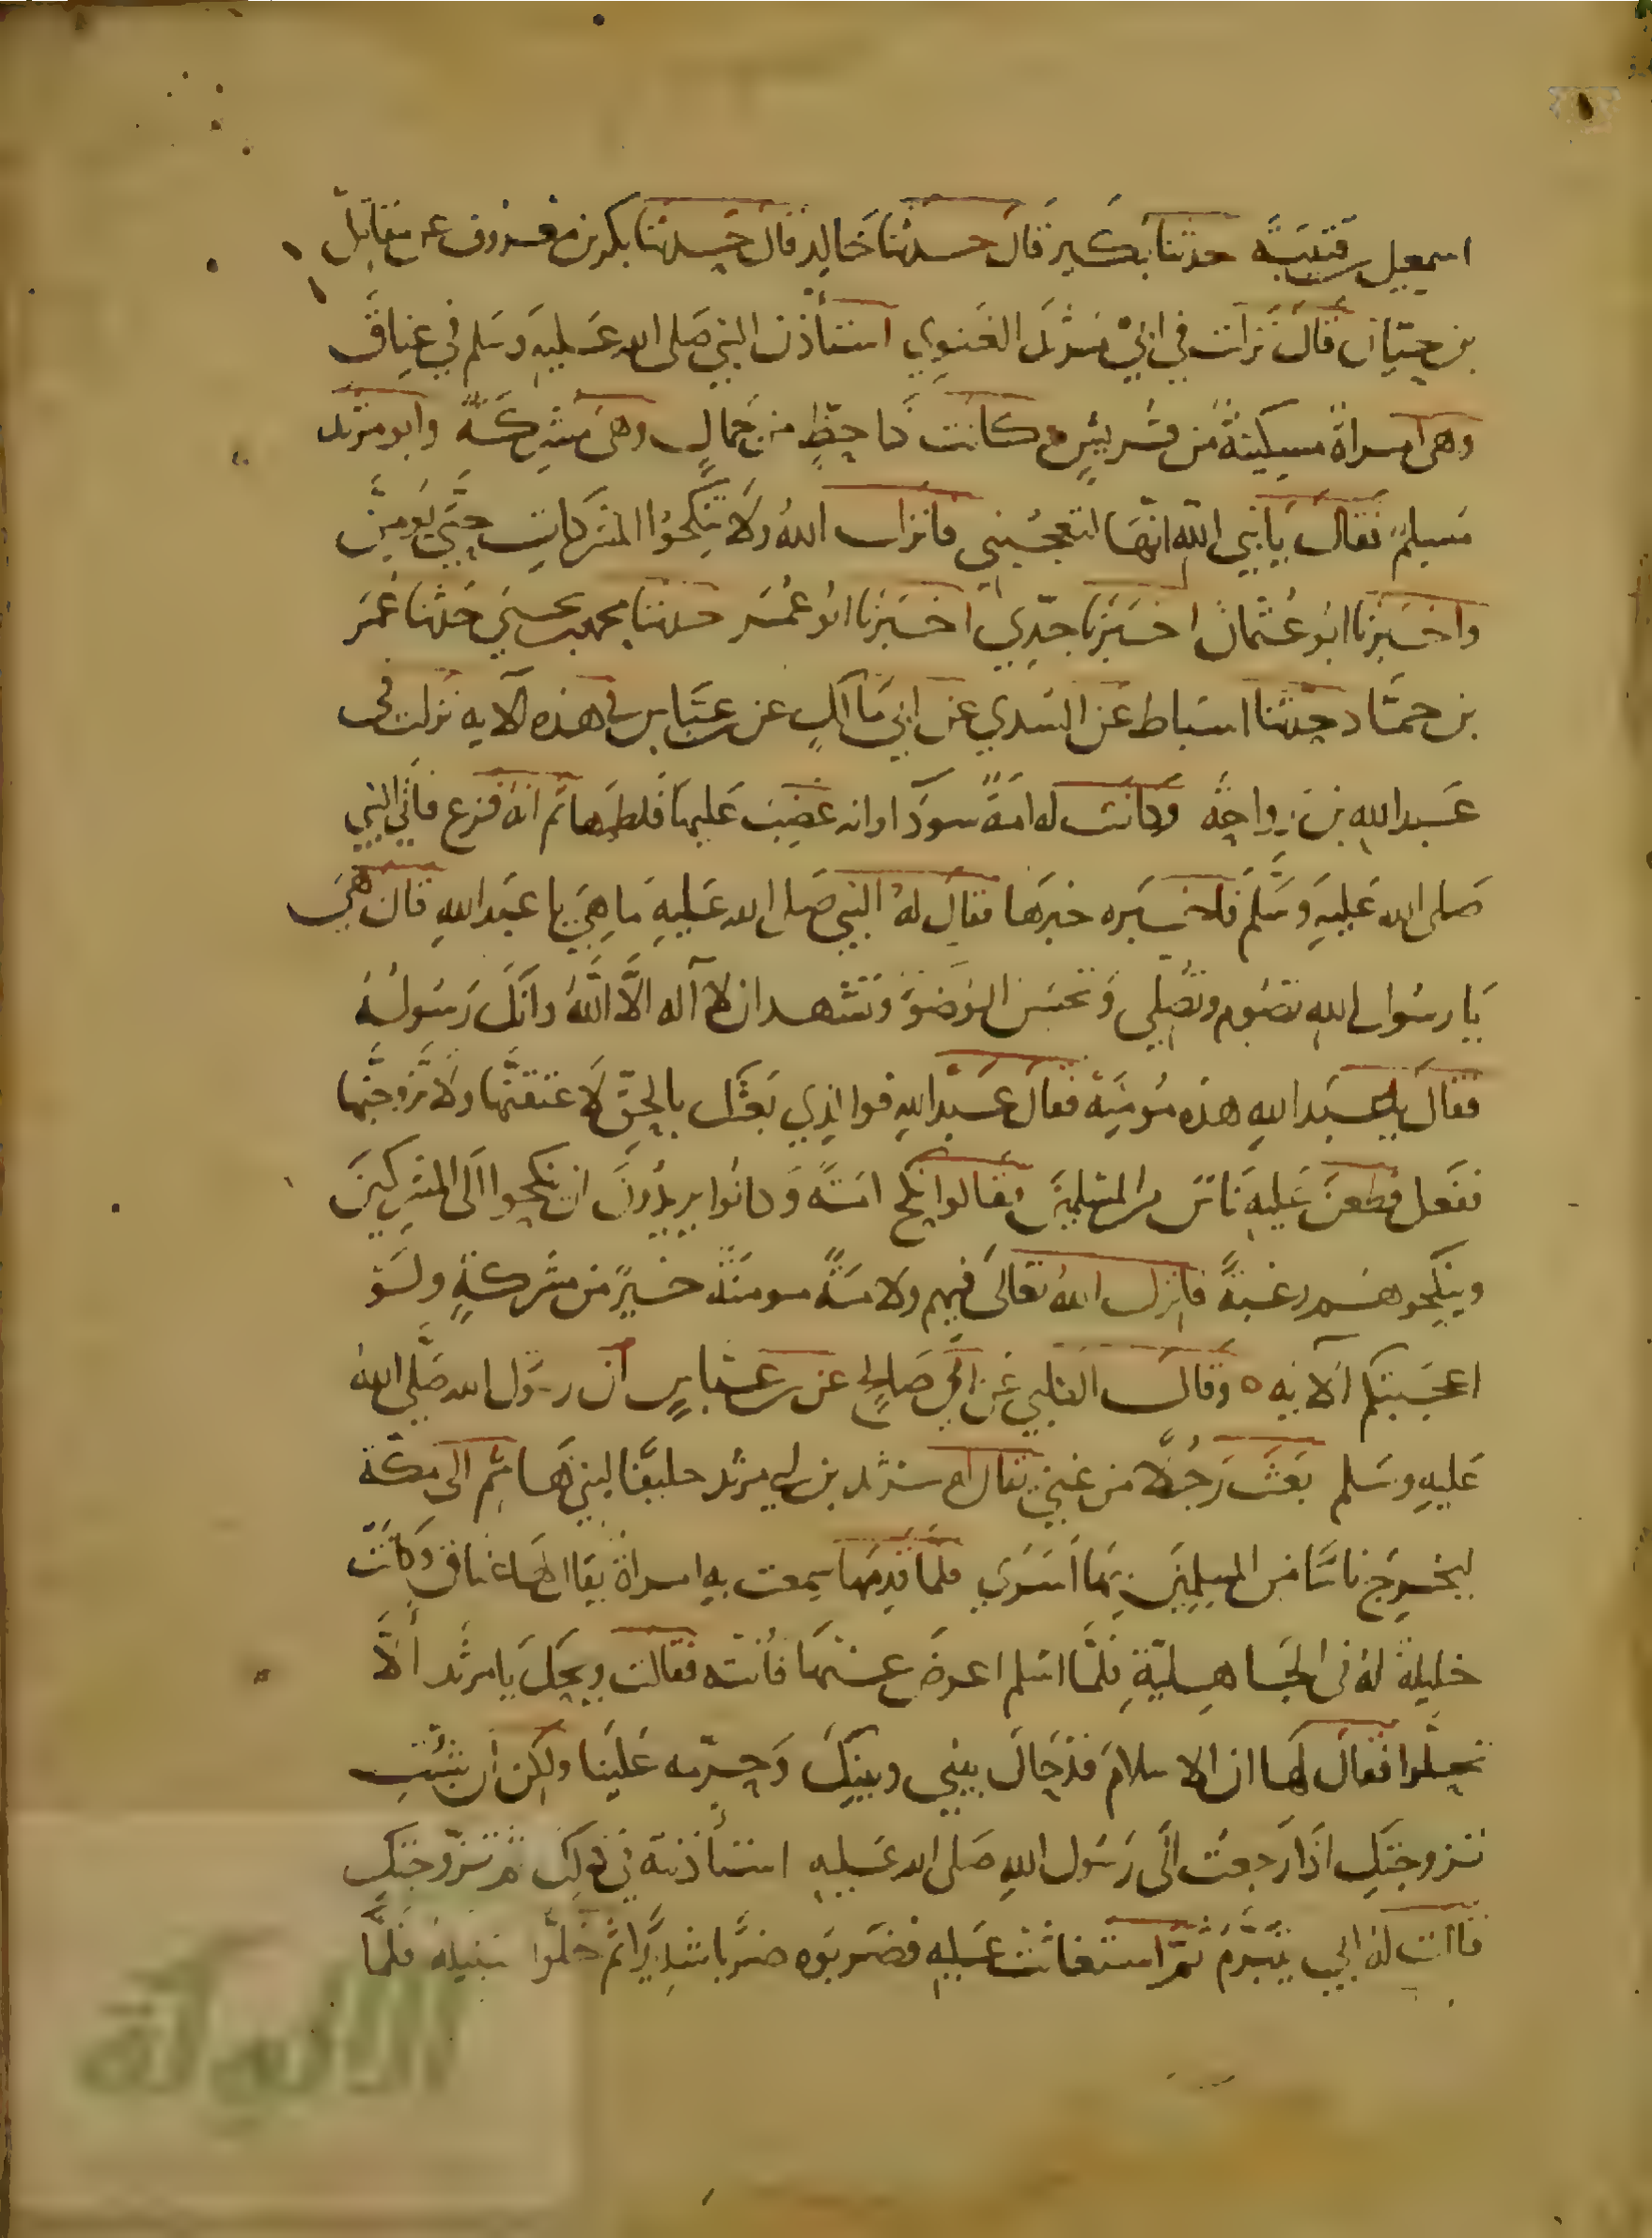 اسمعيل قتيبة حدثنا بكير قال حدثنا خالد قال حدثنا بكر بن معروف عن مقاتل
بن حيان قال نزلت في ابي مرثد الغنوي استأذن النبي صلى الله عليه وسلم في عناق
وهى امراة مسكينة من قريش وكانت ذا حظ من جمال وهى مشركة وابو مرثد
مسلم فقال يا نبي الله انها لتعجبني فانزل الله ولا تنكحوا المشركات حتى يؤمن
واخبرنا ابو عثمان اخبرنا جدي اخبرنا ابو عمر حدثنا محمد بن يحيى حدثنا عمر
بن حماد حدثنا اسباط عن السدي عن ابي مالك عن بن عباس في هذه الآيه نزلت في
عبد الله بن رواحة وكانت له امة سودا وانه غضب عليها فلطمها ثم انه فزع فاتى النبي
صلى الله عليه وسلم فاخبره خبرها فقال له النبي صلى الله عليه ما هي يا عبد الله قال هي
يا رسول الله تصوم وتصلي وتحسن الوضؤ وتشهد ان لا آله الا الله وانك رسوله
فقال يا عبد الله هذه مؤمنة فقال عبد الله فوالذي بعثك بالحق لا عتقنها ولا تزوجنها
ففعل فطعن عليه ناس من المسلمين فقالوا نكح امة وكانوا يريدون ان ينكحوا الى المشركين
وينكحوهم رغبة فانزل الله تعالى فيهم ولامة مومنة خير من مشركة ولو
اعجبتكم الآيه ٥ وقال الكلبي عن ابي صالح عن بن عباس ان رسول الله صلى الله
عليه وسلم بعث رجلا من غني يقال له مرثد بن ابي مرثد حليفا لبني هاشم الى مكة
ليخرج ناسا من المسلمين بها اسرى فلما قدمها سمعت به امراة يقال لها عناق وكانت
خليلة له في الجاهلية فلما اسلم اعرض عنها فأتته فقالت ويحك يا مرثد ألا
تخلوا فقال لها ان الاسلام قد حال بيني وبينك وحرمه علينا ولكن ان شئت
تزوجتك اذا رجعت الى رسول الله صلى الله عليه استأذنته في ذلك ثم تزوجتك
فقالت له ابي تتبرم ثم استغاثت عليه فضربوه ضربا شديدا ثم خلوا سبيله فلما
الألوكة